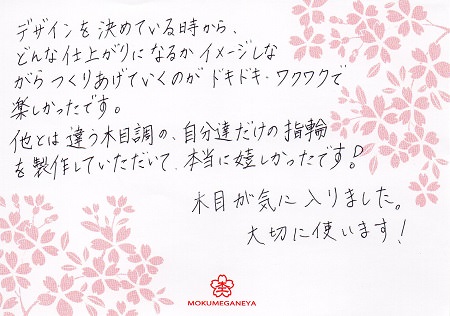 デザインを決めている時から、
どんな仕上がりになるかイメージしな
がらつくりあげていくのがドキドキ・ワクワクで
楽しかったです。
他とは違う木目調の、自分達だけの指輪
を製作していただいて、本当に嬉しかったです!
木目が気に入りました。
大切に使います!
MOKUMEGANEYA